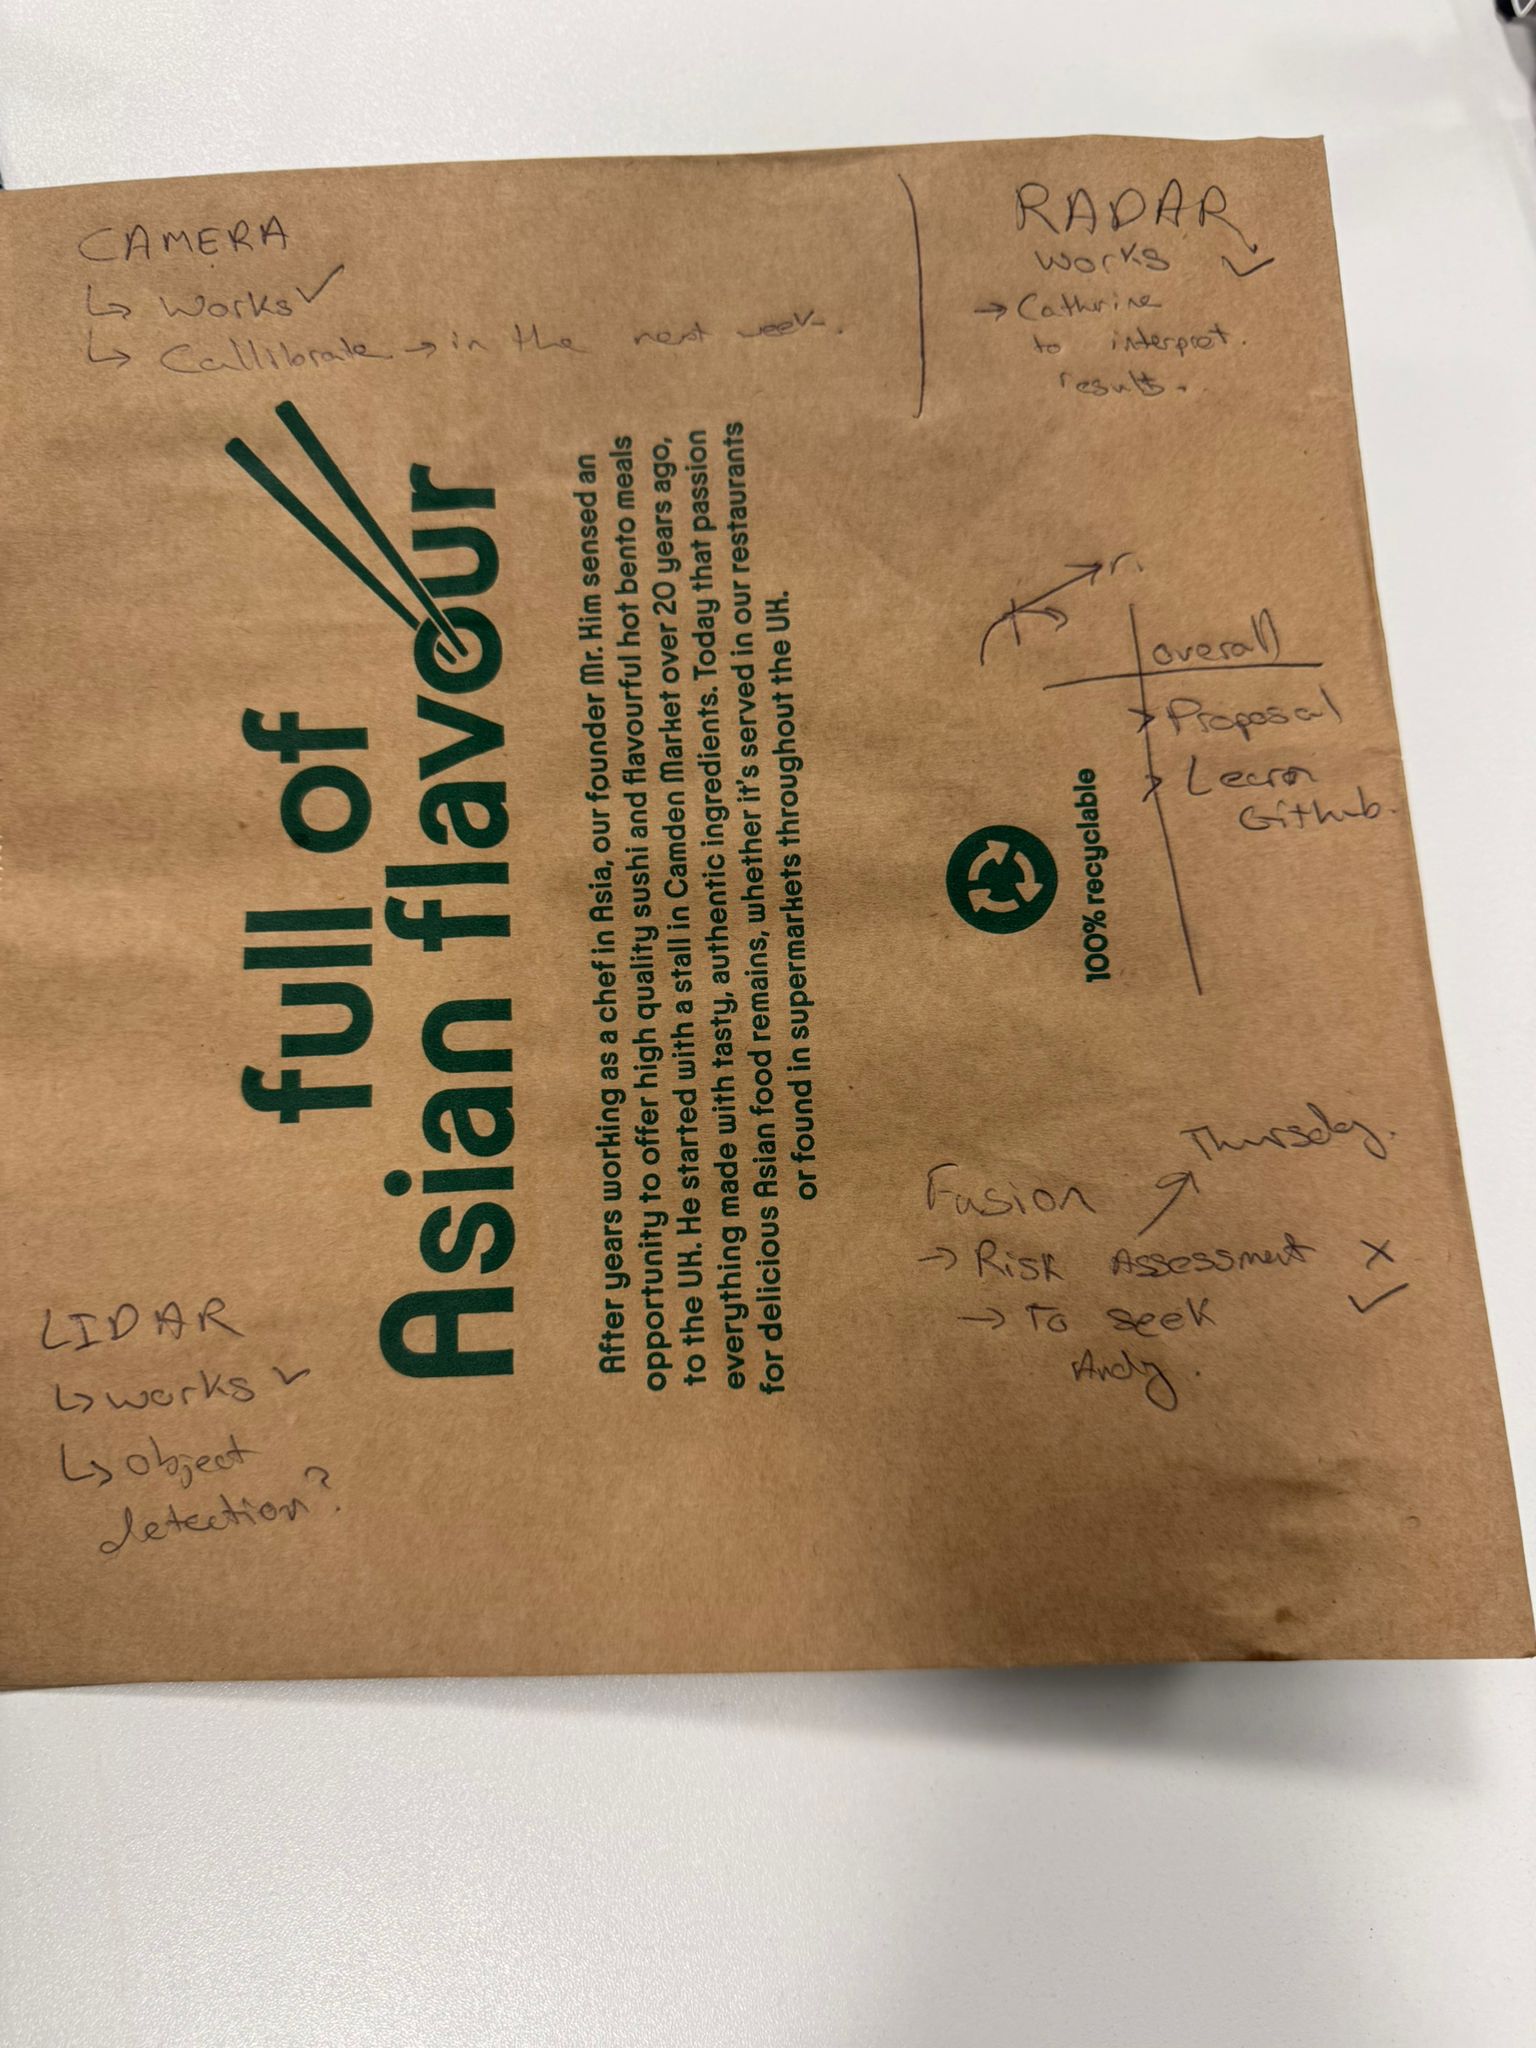 CAMERA
↳ Works ✓
↳ Callibrate → in the next week.
RADAR
works ✓
→ Cathrine
to interpret.
results.
full of
Asian flavour
After years working as a chef in Asia, our founder Mr. Kim sensed an
opportunity to offer high quality sushi and flavourful hot bento meals
to the UK. He started with a stall in Camden Market over 20 years ago,
everything made with tasty, authentic ingredients. Today that passion
for delicious Asian food remains, whether it's served in our restaurants
or found in supermarkets throughout the UK.
r.
overall
> Proposal
> Learn
Github.
100% recyclable
LIDAR
↳ works ✓
↳ object
detection?
Fusion
Thursday.
→ Risk Assessment ✗
→ To seek ✓
Andy.